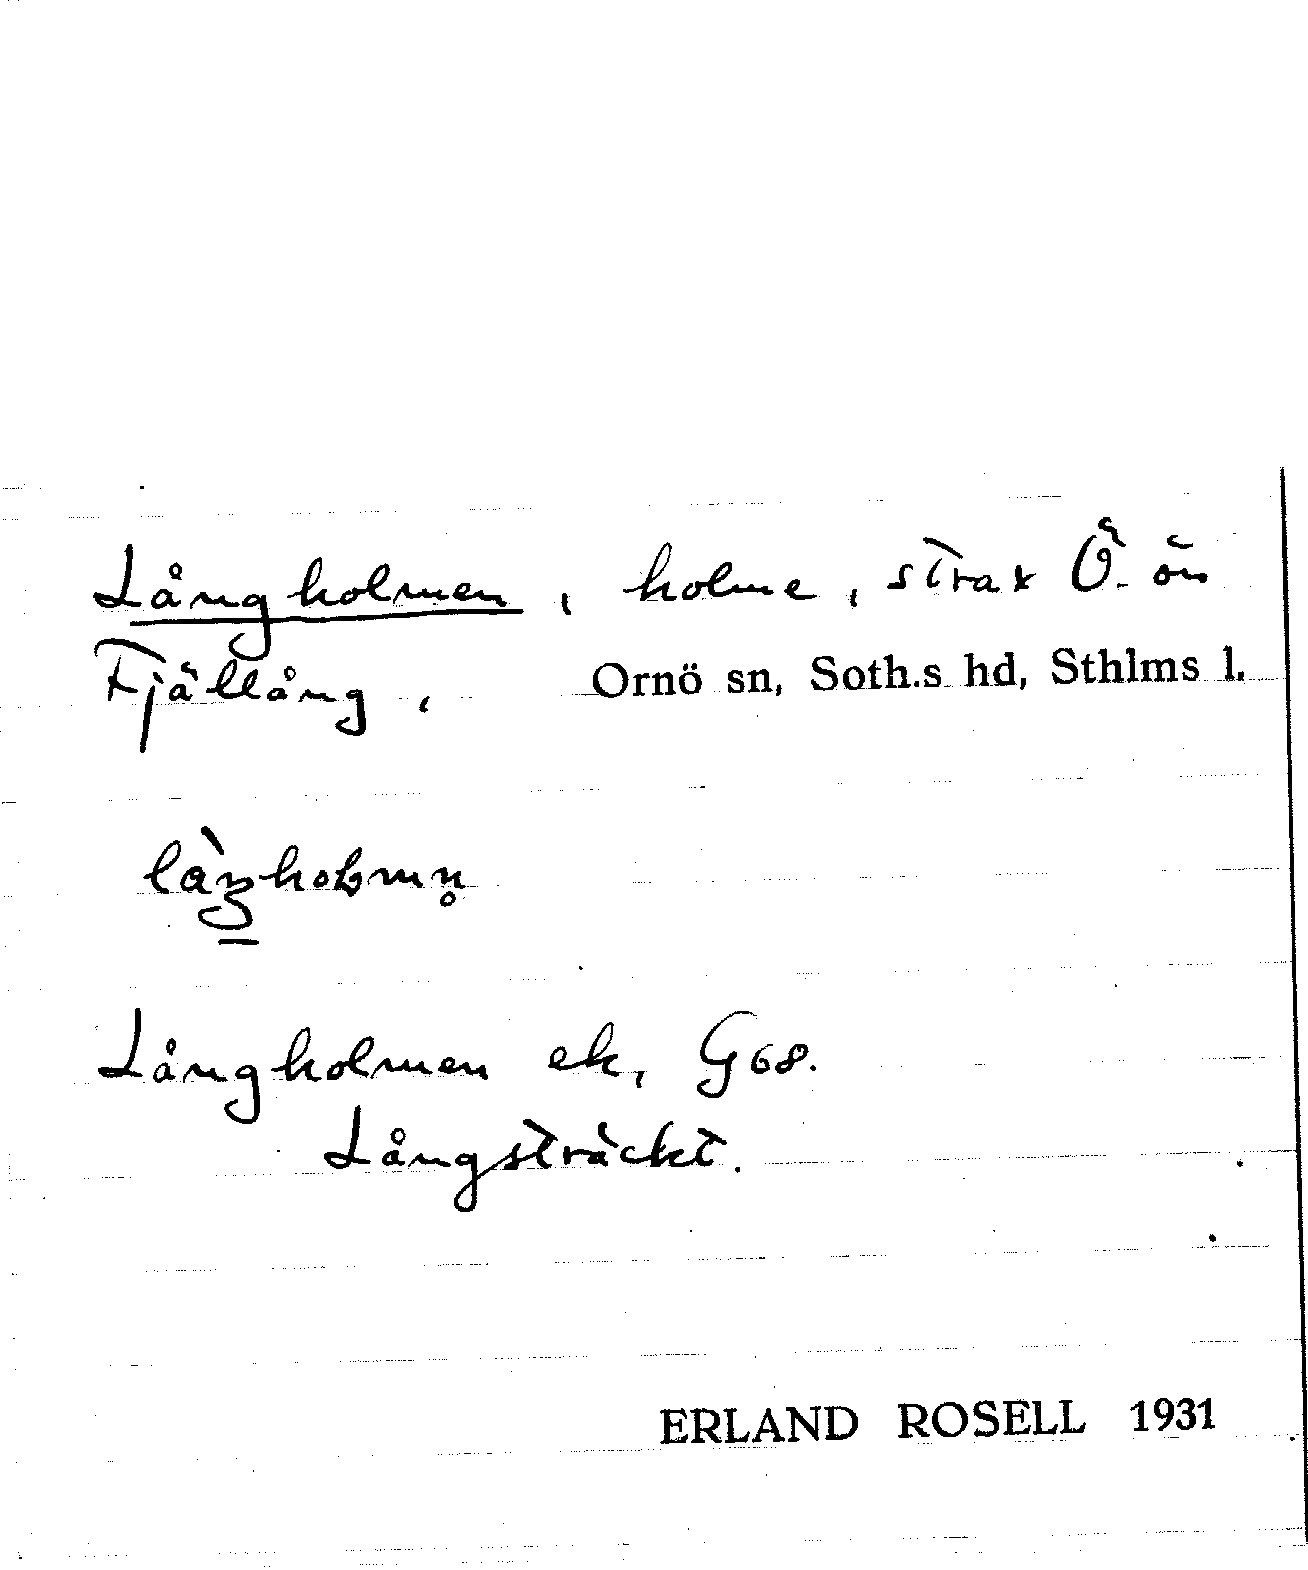 Långholmen, holme, strax Ö. ön
Fjällång, Ornö sn, Soth.s hd, Sthlms l.
Långholmen ek, G68.
Långsträckt.
ERLAND ROSELL 1931